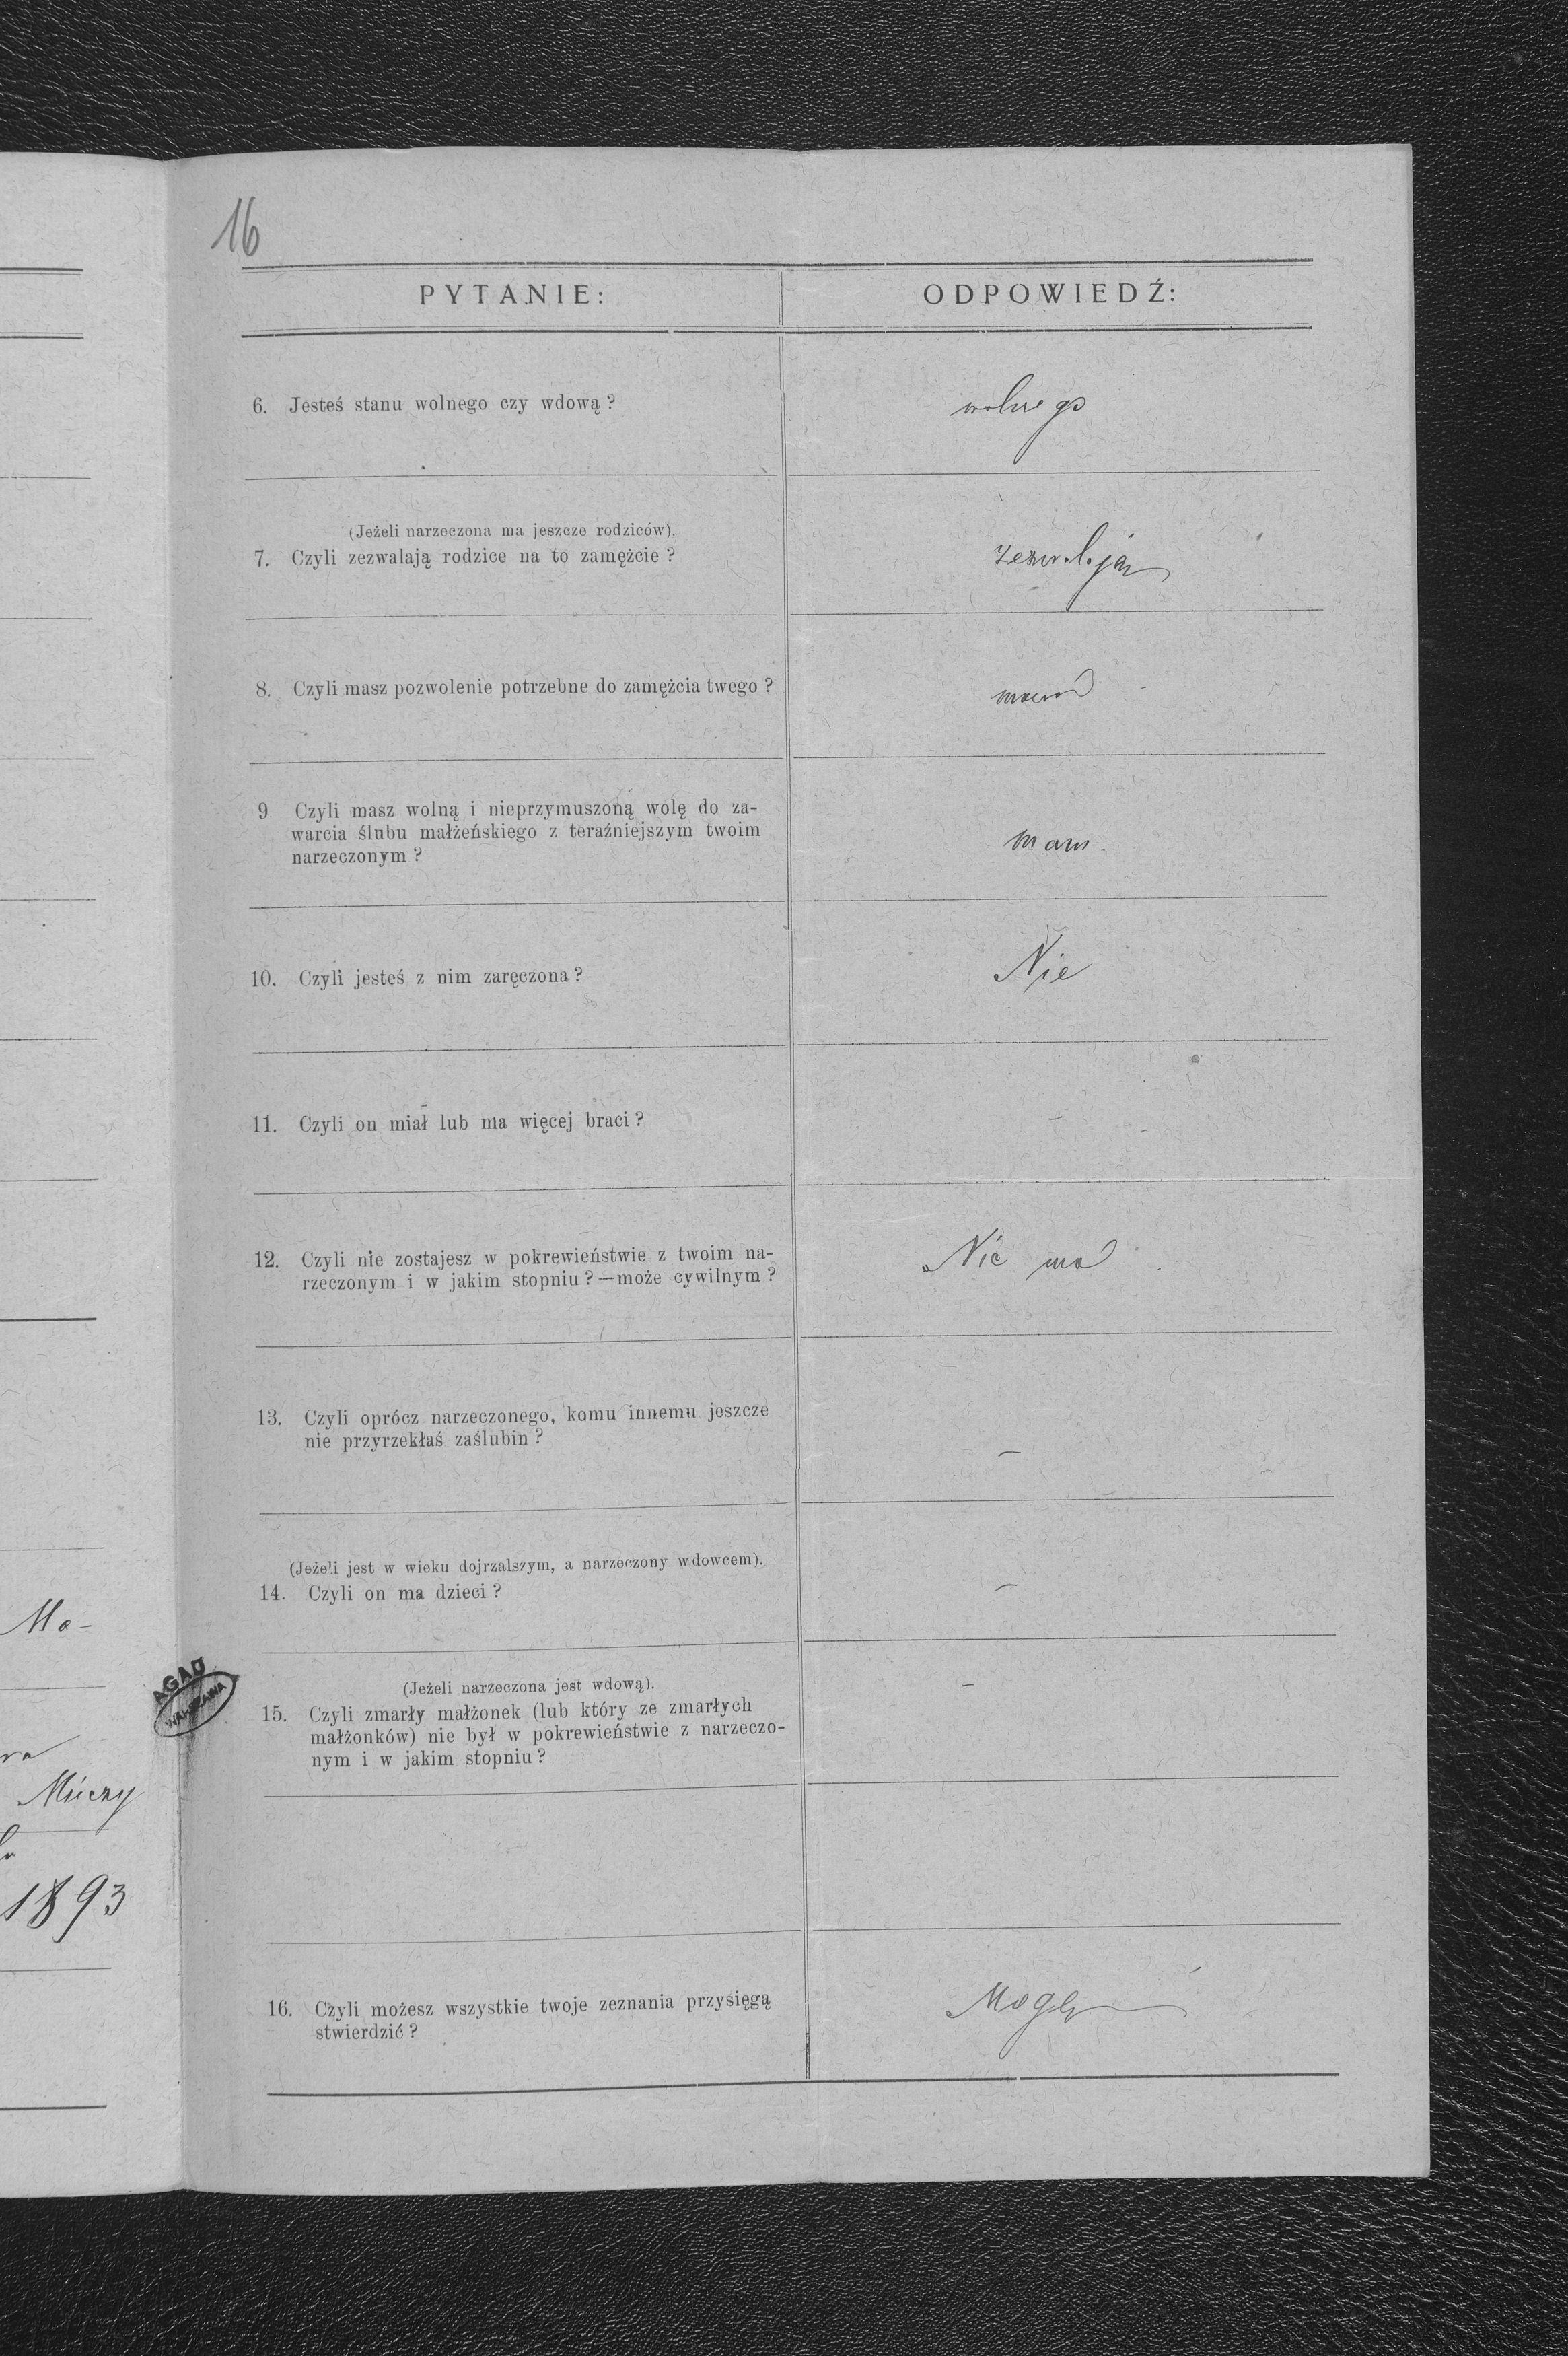 16
PYTANIE:
ODPOWIEDŹ:
6. Jesteś stanu wolnego czy wdową?
wolnego
(Jeżeli narzeczona ma jeszcze rodziców).
7. Czyli zezwalają rodzice na to zamężcie?
zezwalają
8. Czyli masz pozwolenie potrzebne do zamężcia twego?
9. Czyli masz wolną i nieprzymuszoną wolę do za-
warcia ślubu małżeńskiego z teraźniejszym twoim
narzeczonym?
mam.
10. Czyli jesteś z nim zaręczona?
Nie
11. Czyli on miał lub ma więcej braci?
–
12. Czyli nie zostajesz w pokrewieństwie z twoim na-
rzeczonym i w jakim stopniu?—może cywilnym?
Nie ma
13. Czyli oprócz narzeczonego, komu innemu jeszcze
nie przyrzekłaś zaślubin?
–
(Jeżeli jest w wieku dojrzalszym, a narzeczony wdowcem).
14. Czyli on ma dzieci?
–
(Jeżeli narzeczona jest wdową).
15. Czyli zmarły małżonek (lub który ze zmarłych
małżonków) nie był w pokrewieństwie z narzeczo-
nym i w jakim stopniu?
–
16. Czyli możesz wszystkie twoje zeznania przysięgą
stwierdzić?
Mogę
Ma-
AGAD
WARSZAWA
1893